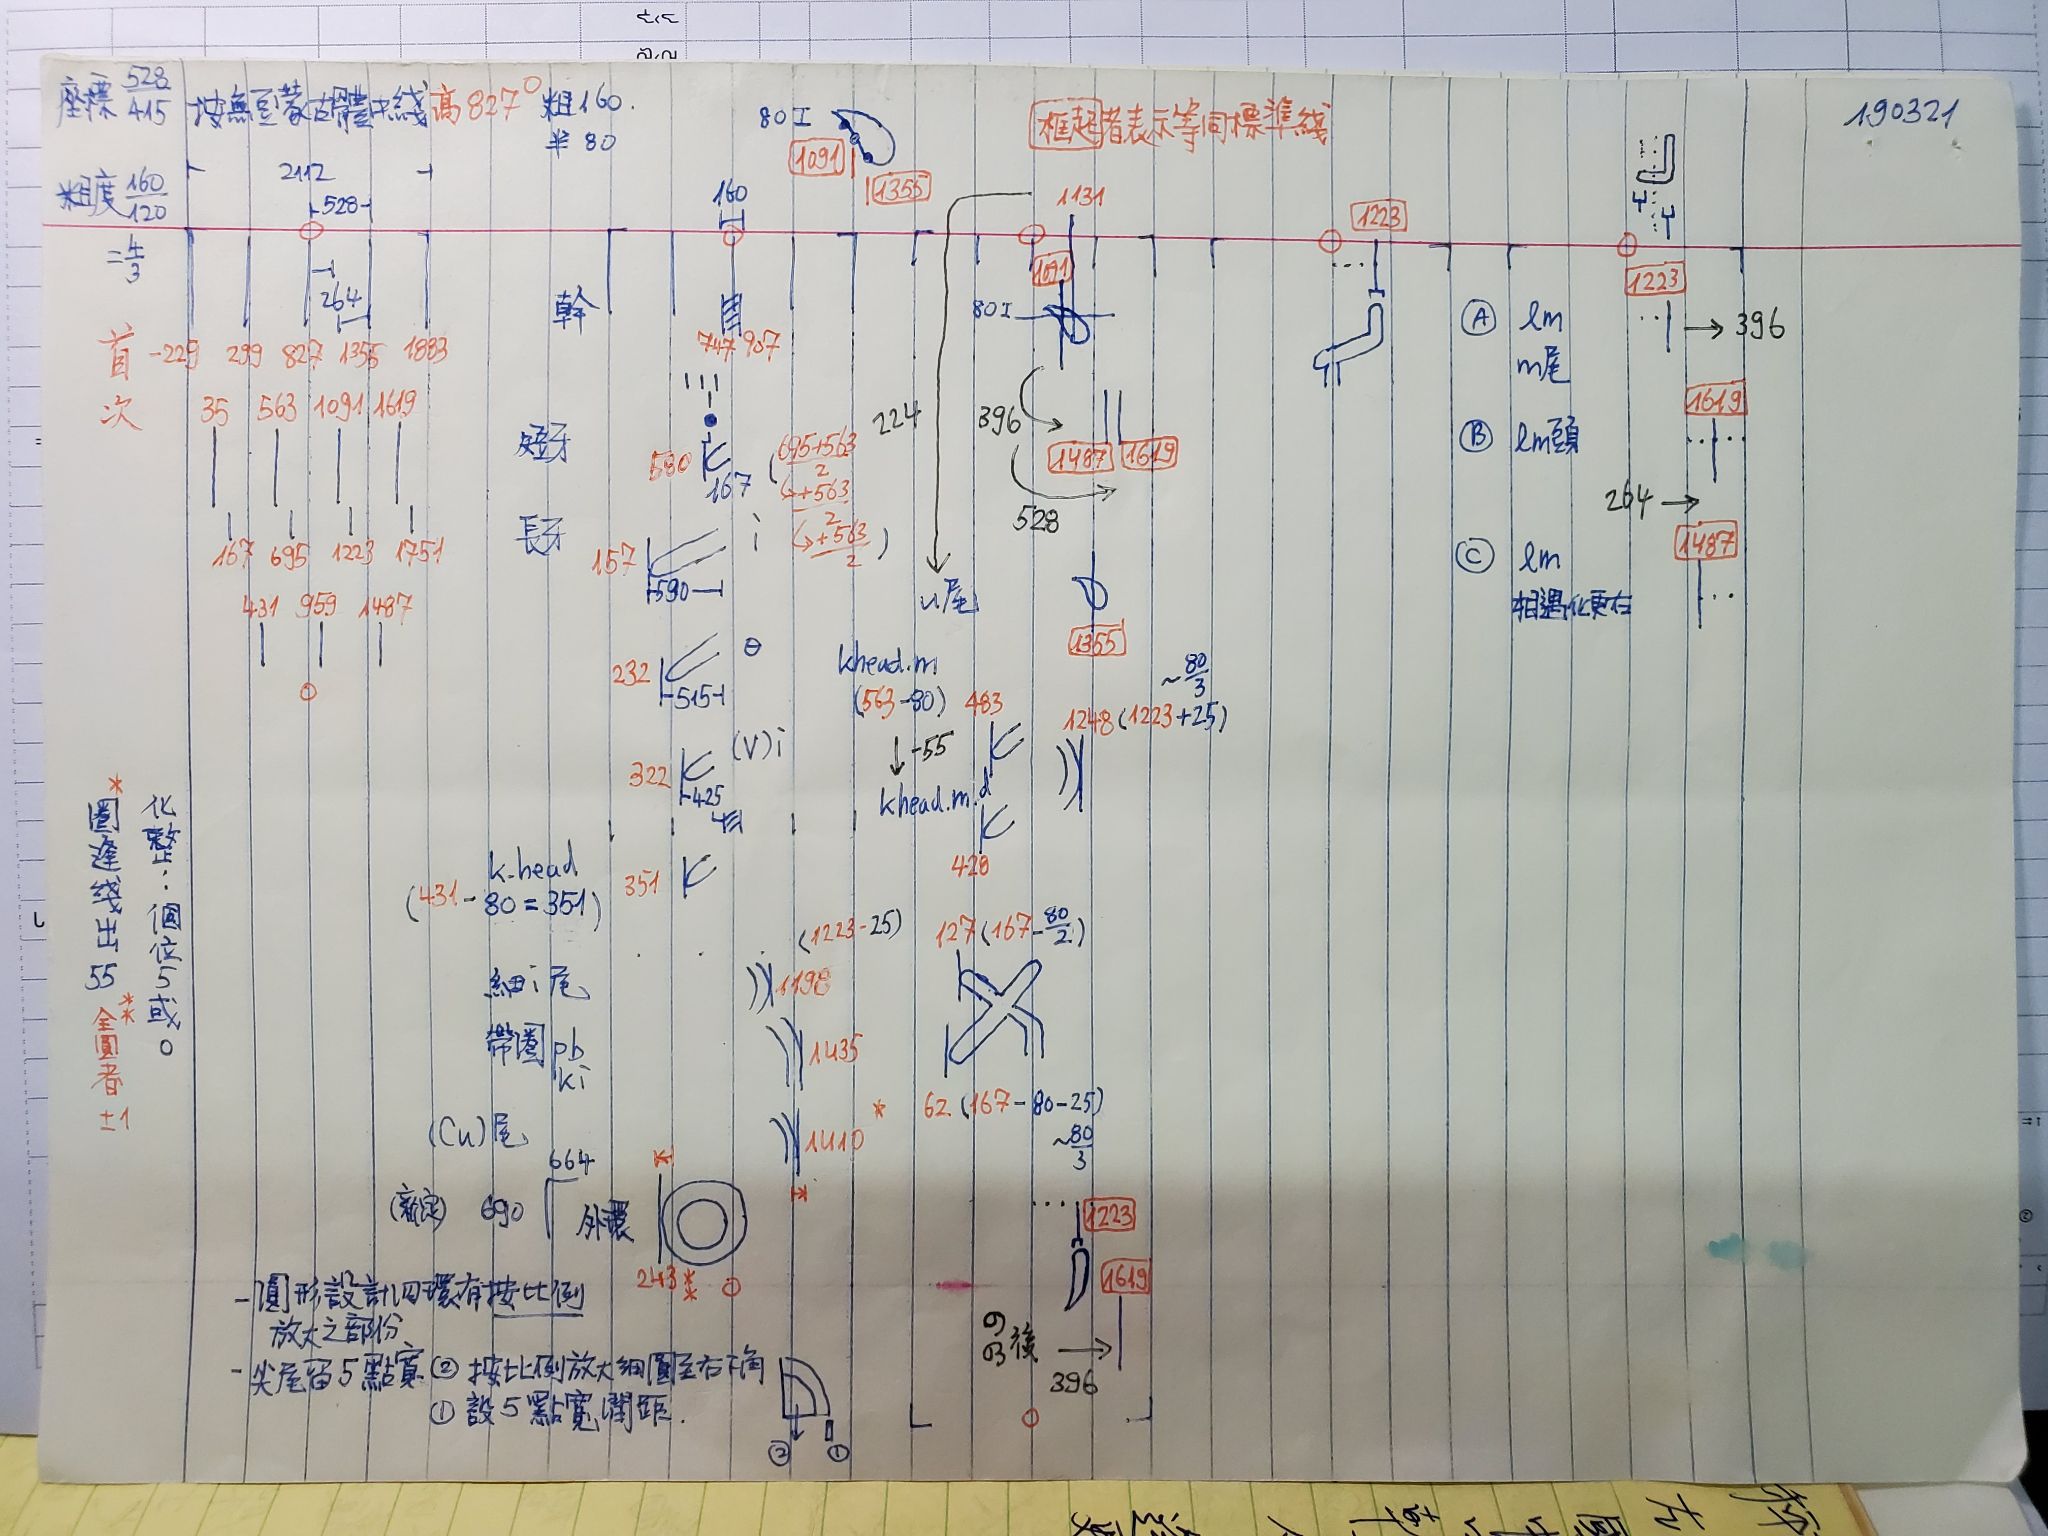 座標 528/415
按無豆蒙古體中綫高827° 粗160.
半80
80I
1091
1355
框起者表示等同標準綫
190321
粗度 160/120
= 4/3
2112
528
264
160
1131
1223
首 -229 299 827 1355 1883
次 35 563 1091 1619
167 695 1223 1751
431 959 1487
幹
747 907
短牙
580
167
(695+563/2
↳+563/2
↳+563/2)
長牙
157
590
i
232
515
θ
322
425
(V)i
k-head
(431-80=351)
351
(1223-25)
細i尾
1198
帶圈 pb
ki
1435
(Cu)尾
1410
664
(新定) 690
外環
243**
1091
80I
224
396
1487 1619
528
u尾
1355
khead.m
(563-80) 483
~80/3
1248(1223+25)
↓-55
khead.m.d
428
127(167-80/2)
* 62 (167-80-25)
~80/3
1223
1619
後 →
396
Ⓐ lm
m尾
1223
→396
Ⓑ lm頭
1619
264→
Ⓒ lm
相遇化更右
1487
化整:個位5或0
*圈逢綫出55
**全圓者±1
-圓形設計四環有按比例
放大之部份
-尖尾留5點寬 ② 按比例放大細圓至右下角
① 設5點寬間距.
② ①